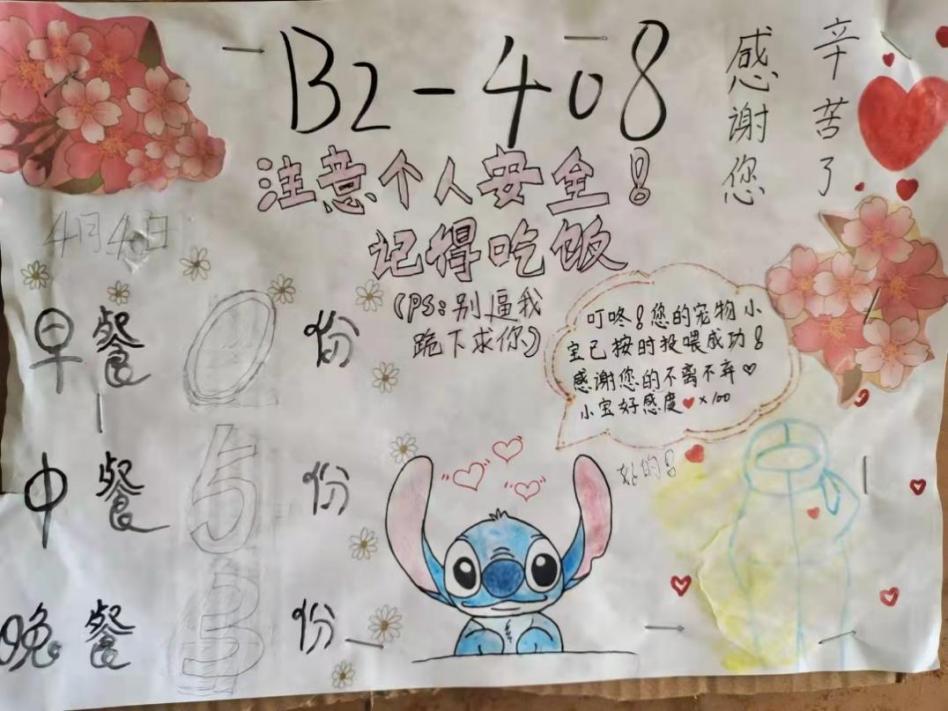 B2-408
感谢您
辛苦了
注意个人安全!
记得吃饭
(PS:别逼我
跪下求你)
4月4日
早餐 0 份
中餐 5 份
晚餐 3 份
叮咚!您的宠物小
宝已按时投喂成功!
感谢您的不离不弃♡
小宝好感度❤×100
好的!